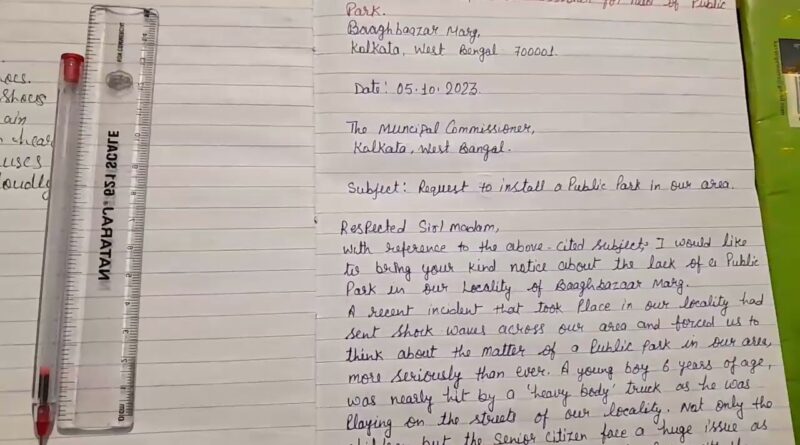 ocs.
shocks
ain
hear
uses
loudly
NATARAJ 621 SCALE
for need of Public
Park.
Baaghbazar Marg,
Kolkata, West Bengal 700001.
Date: 05.10.2023.
The Muncipal Commissioner,
Kolkata, West Bangal.
Subject: Request to install a Public Park in our area.
Respected Sir/madam,
with reference to the above-cited subject, I would like
to bring your kind notice about the lack of a Public
Park in our Locality of Baaghbazaar Marg.
A recent incident that took Place in our locality had
sent shock waves across our area and forced us to
think about the matter of a Public Park in our area,
more seriously than ever. A young boy 6 years of age,
was nearly hit by a 'heavy body' truck as he was
Playing on the streets of our locality. Not only the
but the Senior Citizen face a huge issue as